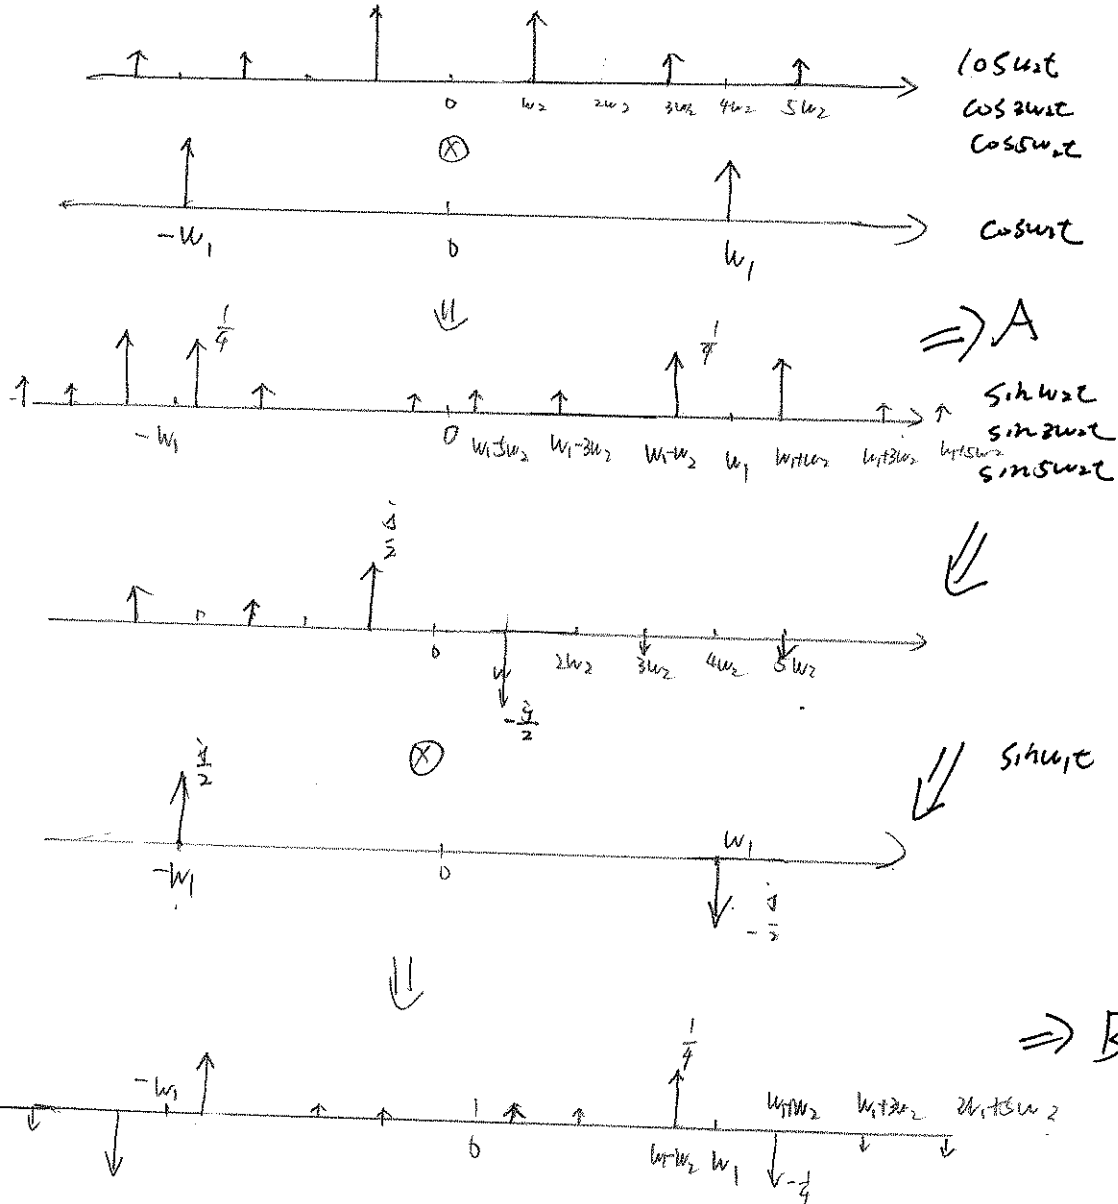 cosw₂t
0 w₂ 2w₂ 3w₂ 4w₂ 5w₂ cos3w₂t
⊗ cos5w₂t
-w₁ 0 w₁ cosw₁t
⇓
1/4 1/4 ⇒ A
-w₁ 0 w₁-5w₂ w₁-3w₂ w₁-w₂ w₁ w₁+w₂ w₁+3w₂ w₁+5w₂
sinw₂t
sin3w₂t
sin5w₂t
j/2
0 w 2w₂ 3w₂ 4w₂ 5w₂
-j/2
j/2 ⊗ sinw₁t
w₁
-w₁ 0
-j/2
⇓
1/4 ⇒ B
-w₁ w₁+w₂ w₁+3w₂ 2w₁+5w₂
0 w₁-w₂ w₁
-1/4